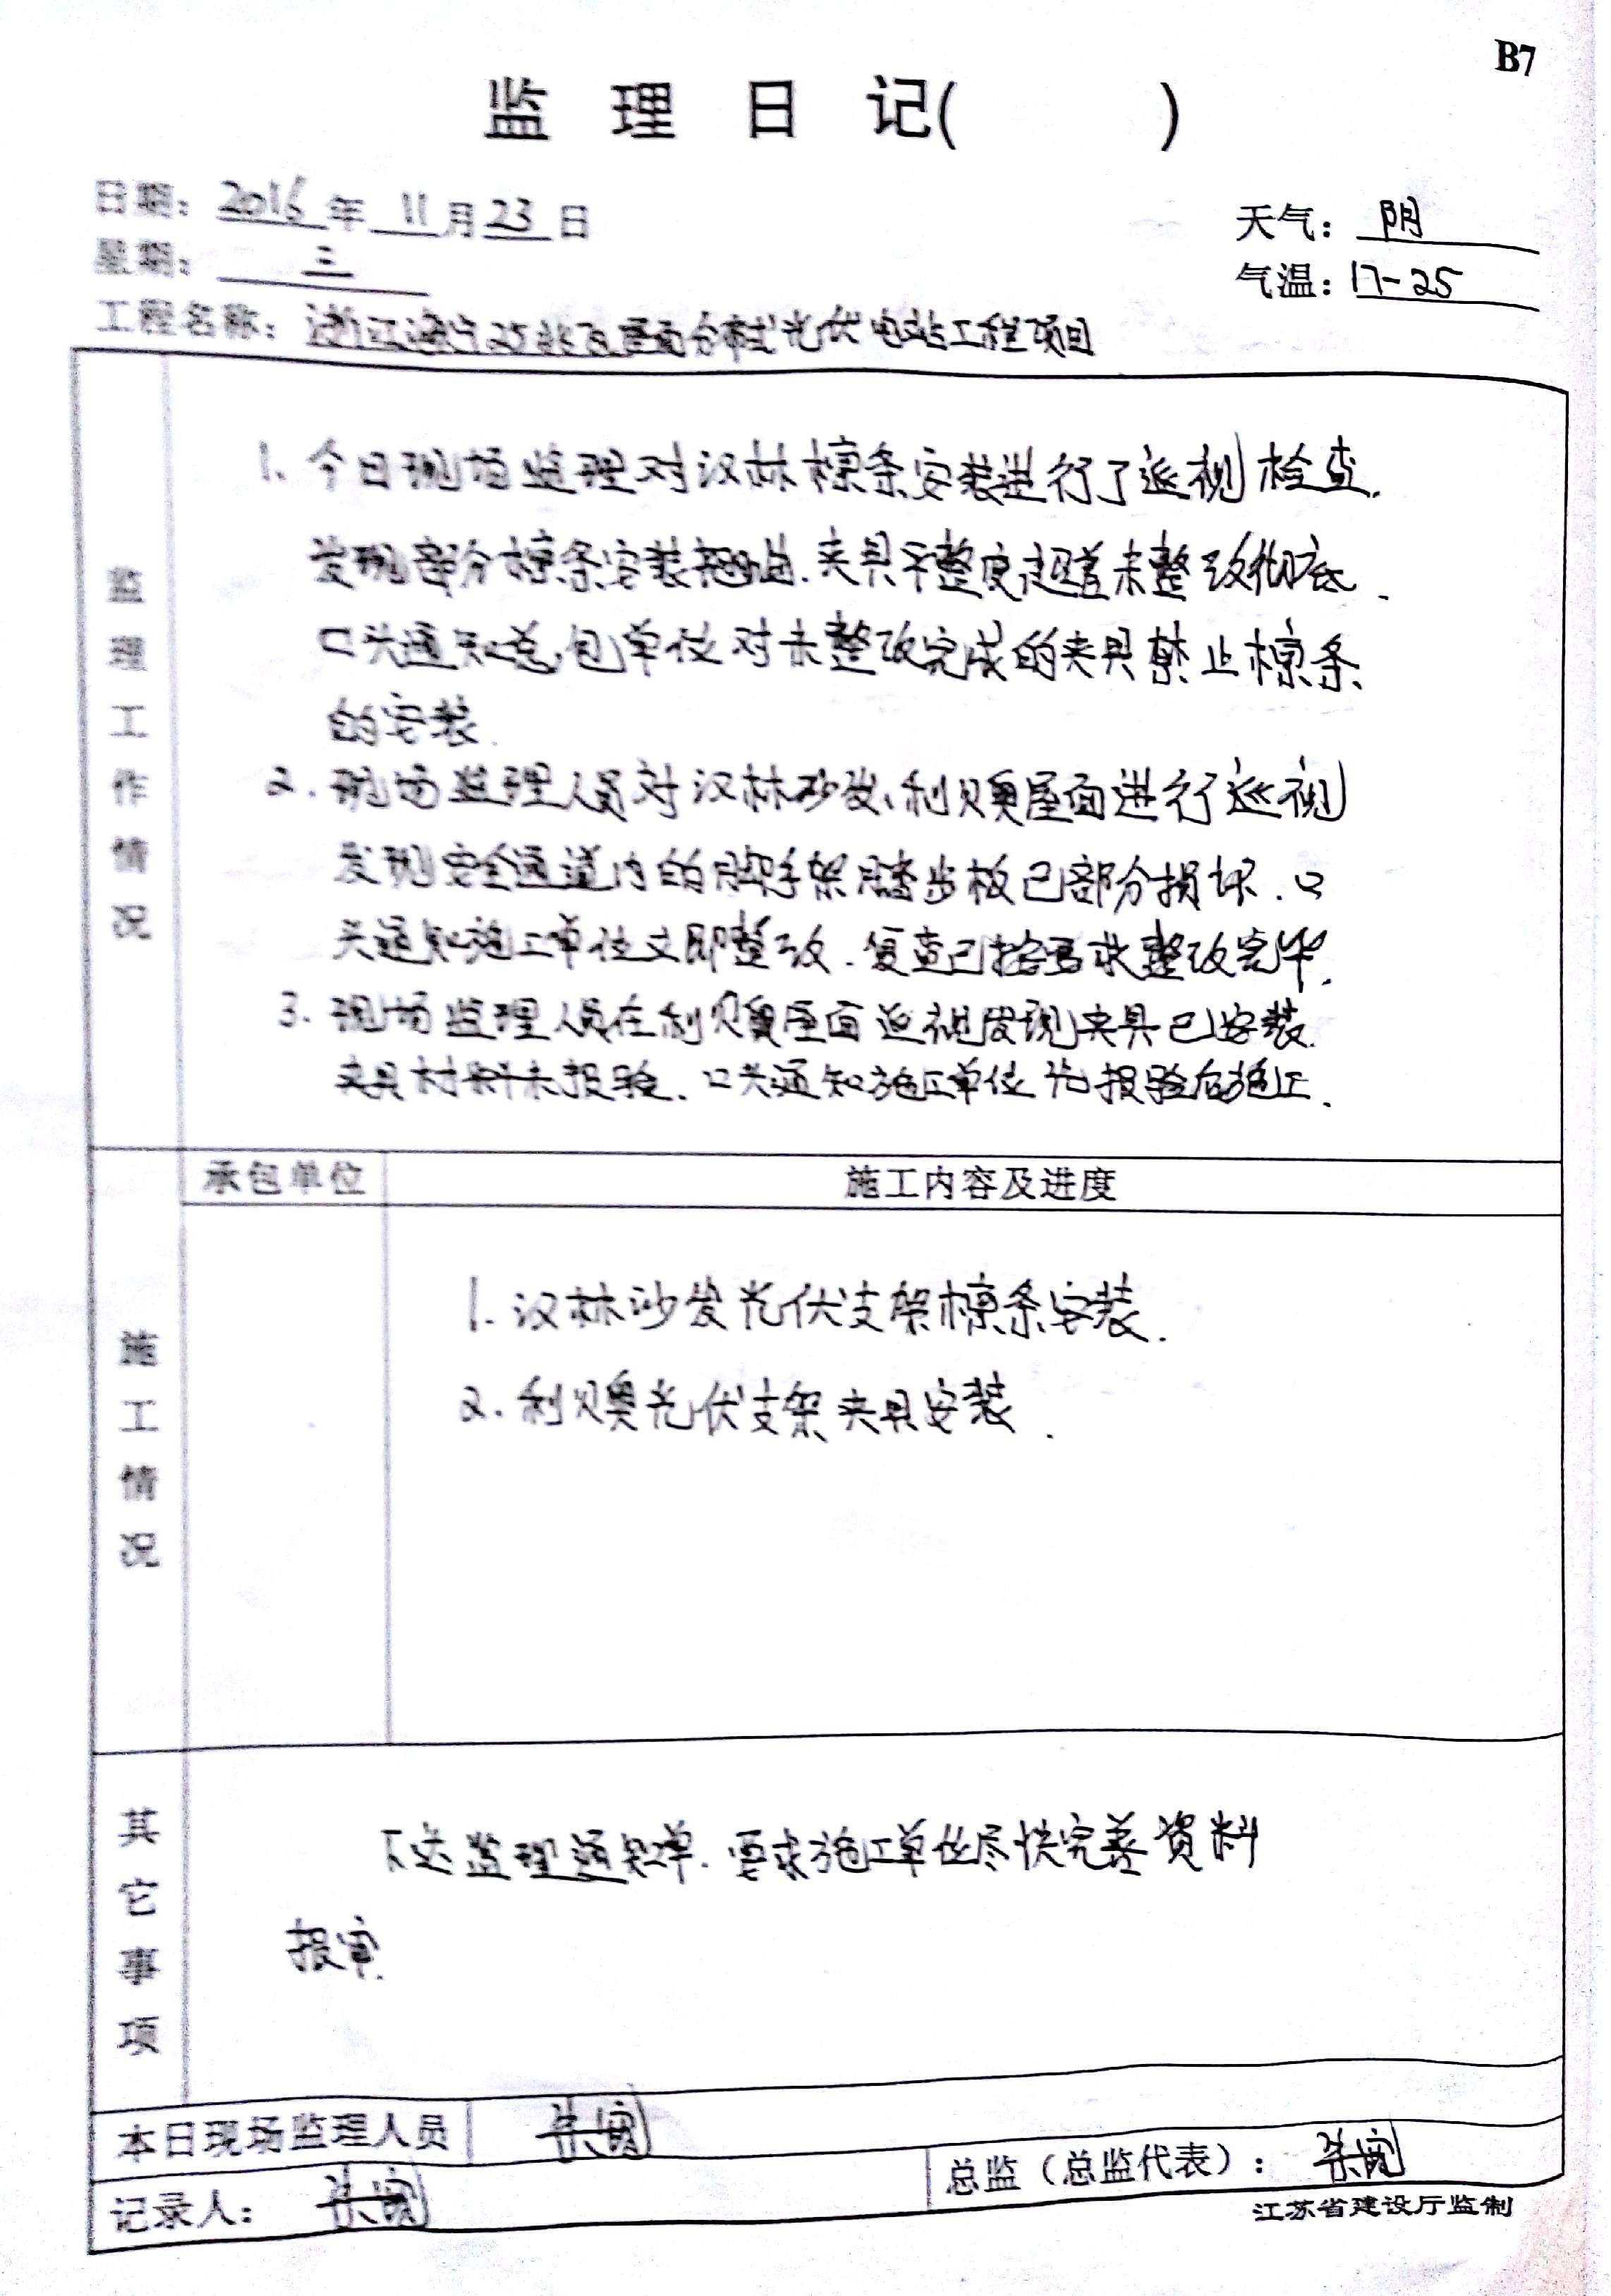 B7
监 理 日 记( )
日期: 2016 年 11 月 23 日
天气: 阴
星期: 三
气温: 17-25
工程名称: 浙江海宁25兆瓦屋面分布式光伏电站工程项目
监理工作情况
1. 今日现场监理对汉林檩条安装进行了巡视检查.
发现部分檩条安装 夹具平整度超差未整改彻底.
口头通知总包单位对未整改完成的夹具禁止檩条
的安装.
2. 现场监理人员对汉林沙发、利熯屋面进行巡视
发现安全通道内的脚手架踏步板已部分损坏. 口
头通知施工单位立即整改. 复查已按要求整改完毕.
3. 现场监理人员在利熯屋面巡视发现夹具已安装.
夹具材料未报验. 口头通知施工单位先报验后施工.
承包单位 施工内容及进度
施工情况
1. 汉林沙发光伏支架檩条安装.
2. 利熯光伏支架夹具安装.
其它事项
下达监理通知单. 要求施工单位尽快完善资料
报审.
本日现场监理人员
总监（总监代表）:
记录人:
江苏省建设厅监制